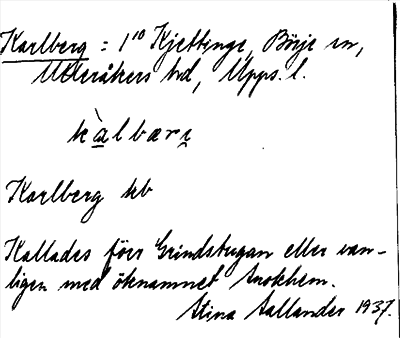 Karlberg = 1¹⁰ Kjettinge, Börje sn,
Ulleråkers hd, Upps. l.
kàlbærı̨
Karlberg hb
Kallades förr Grindstugan eller van-
ligen med öknamnet Snokhem.
Stina Aallander 1937.